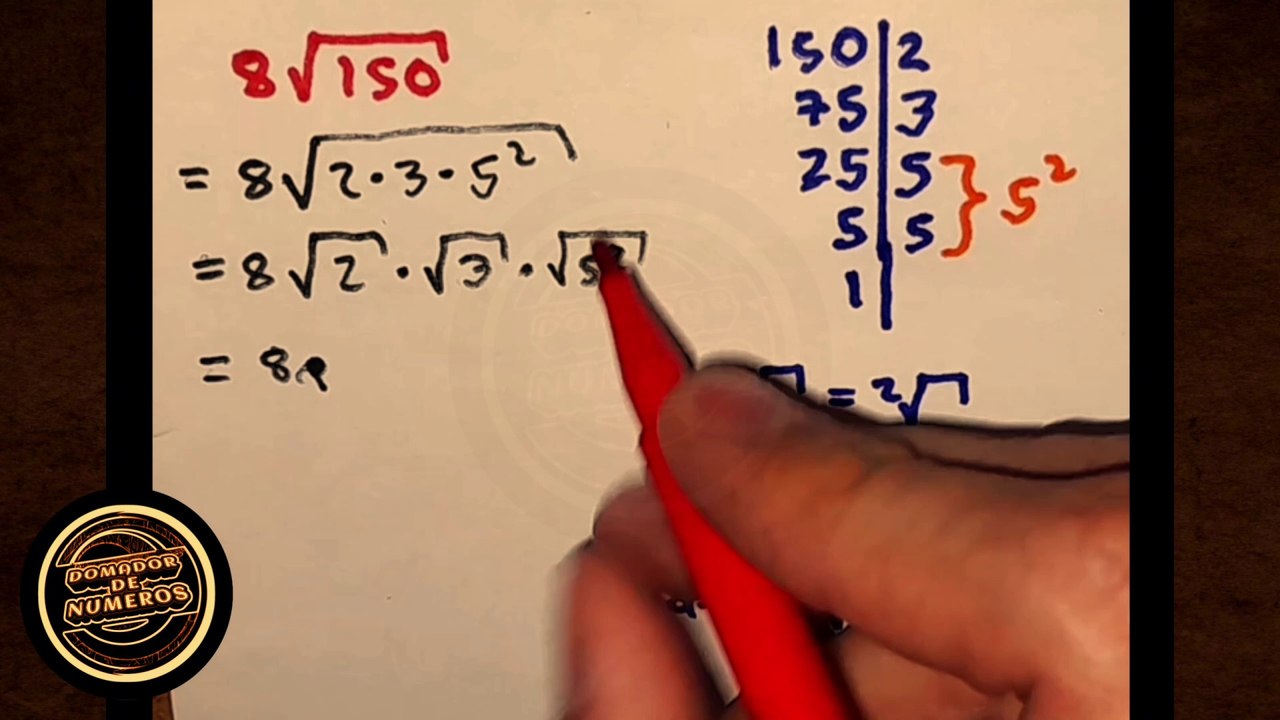 8√150
= 8√2·3·5²
= 8√2 · √3 · √5²
= 8
150 | 2
75 | 3
25 | 5
5 | 5
} 5²
1
√ = ²√
DOMADOR
DE
NUMEROS